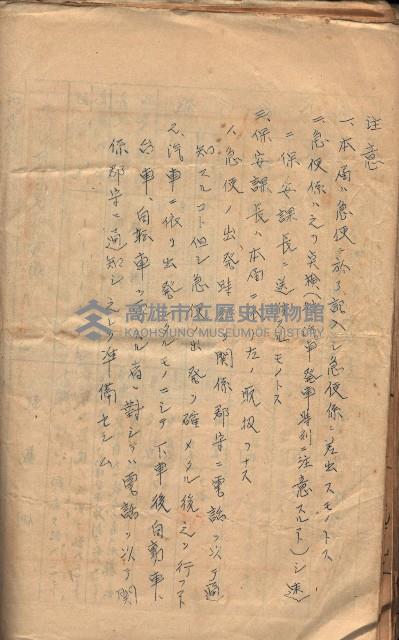 注意
一、本届ハ急使ニ於テ記入シ急使係ニ差出スモノトス
二、急使係ハ之ヲ点検(中発車時刻ニ注意スルト)シ速
ニ保安課長ニ送 モノトス
三、保安課長ハ本届ニ 左ノ取扱ヲナス
1、急使ノ出発時 関係郡守ニ電話ヲ以テ通
知スルコト但シ急使出発ヲ確メタル後之ヲ行フコト
2、汽車ニ依リ出発 ルモノニシテ下車後自動車、
台車、自転車 ル者ニ対シテハ電話ヲ以テ関
係郡守ニ通知シ之レヲ準備セシム
高雄市立歷史博物館
KAOHSIUNG MUSEUM OF HISTORY